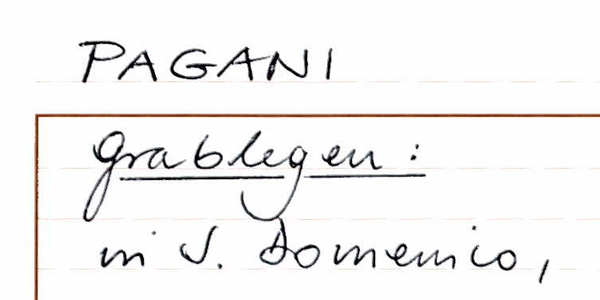 PAGANI
Grablegen:
in S. Domenico,